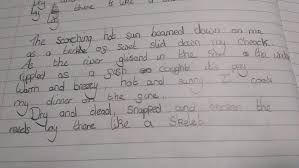 there is like a
The scorching hot sun beamed down on me
as a trickle of sweat slid down my cheeck.
As the river glisend in the sun as the water
rippled as a fish caught it's prey
warm and breezy hot and sunny I cook
my dinner on the
Dry and dead, snapped and broken the
reeds lay there like a Skelet